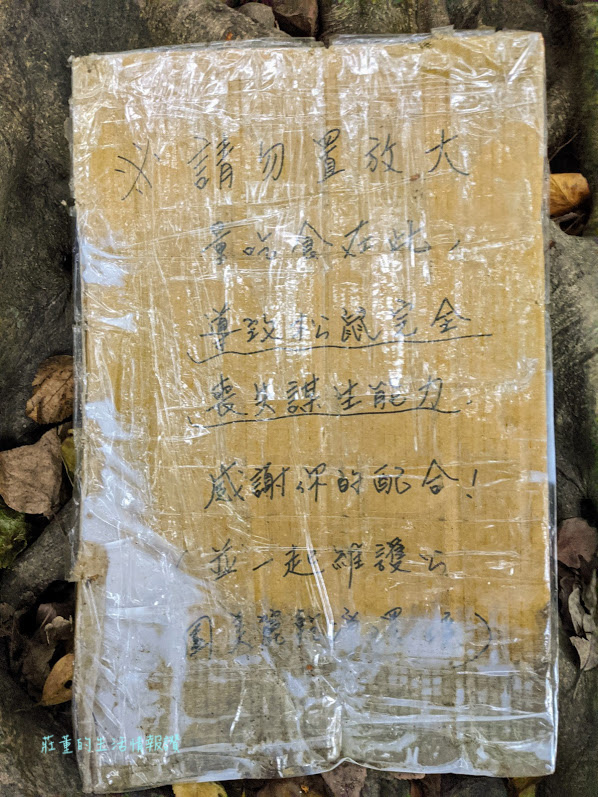 ※請勿置放大
量吃食在此,
導致松鼠完全
喪失謀生能力.
感謝你的配合!
(並一起維護公
園美麗整潔環境)
莊董的生活情報讚